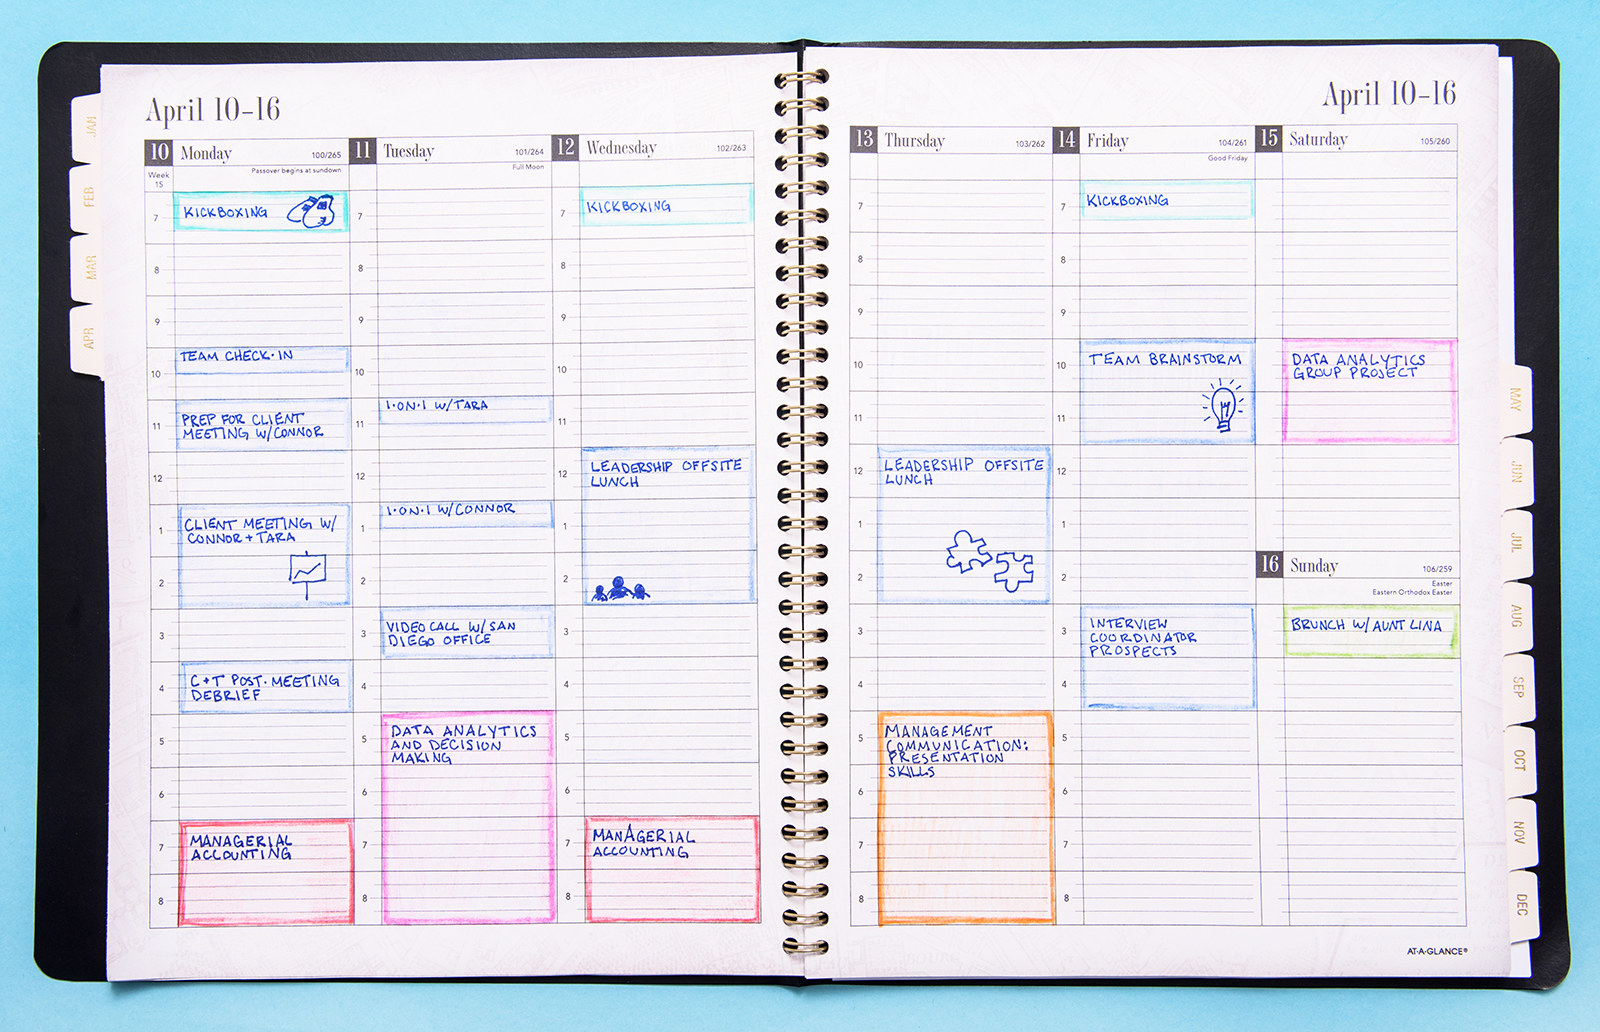 April 10–16
10 Monday 100/265
Passover begins at sundown
Week
15
7
KICKBOXING
8
9
TEAM CHECK-IN
10
PREP FOR CLIENT
11
MEETING W/CONNOR
12
CLIENT MEETING W/
1
CONNOR + TARA
2
3
C+T POST-MEETING
4
DEBRIEF
5
6
MANAGERIAL
7
ACCOUNTING
8
11 Tuesday 101/264
Full Moon
7
8
9
10
1-ON-1 W/TARA
11
12
1-ON-1 W/CONNOR
1
2
VIDEO CALL W/SAN
3
DIEGO OFFICE
4
DATA ANALYTICS
5
AND DECISION
MAKING
6
7
8
12 Wednesday 102/263
7
KICKBOXING
8
9
10
11
LEADERSHIP OFFSITE
12
LUNCH
1
2
3
4
5
6
MANAGERIAL
7
ACCOUNTING
8
April 10–16
13 Thursday 103/262
7
8
9
10
11
LEADERSHIP OFFSITE
12
LUNCH
1
2
3
4
MANAGEMENT
5
COMMUNICATION:
PRESENTATION
SKILLS
6
7
8
14 Friday 104/261
Good Friday
KICKBOXING
7
8
9
TEAM BRAINSTORM
10
11
12
1
2
INTERVIEW
3
COORDINATOR
PROSPECTS
4
5
6
7
8
15 Saturday 105/260
DATA ANALYTICS
GROUP PROJECT
16 Sunday 106/259
Easter
Eastern Orthodox Easter
BRUNCH W/ AUNT LINA
AT-A-GLANCE®
JAN
FEB
MAR
APR
MAY
JUN
JUL
AUG
SEP
OCT
NOV
DEC